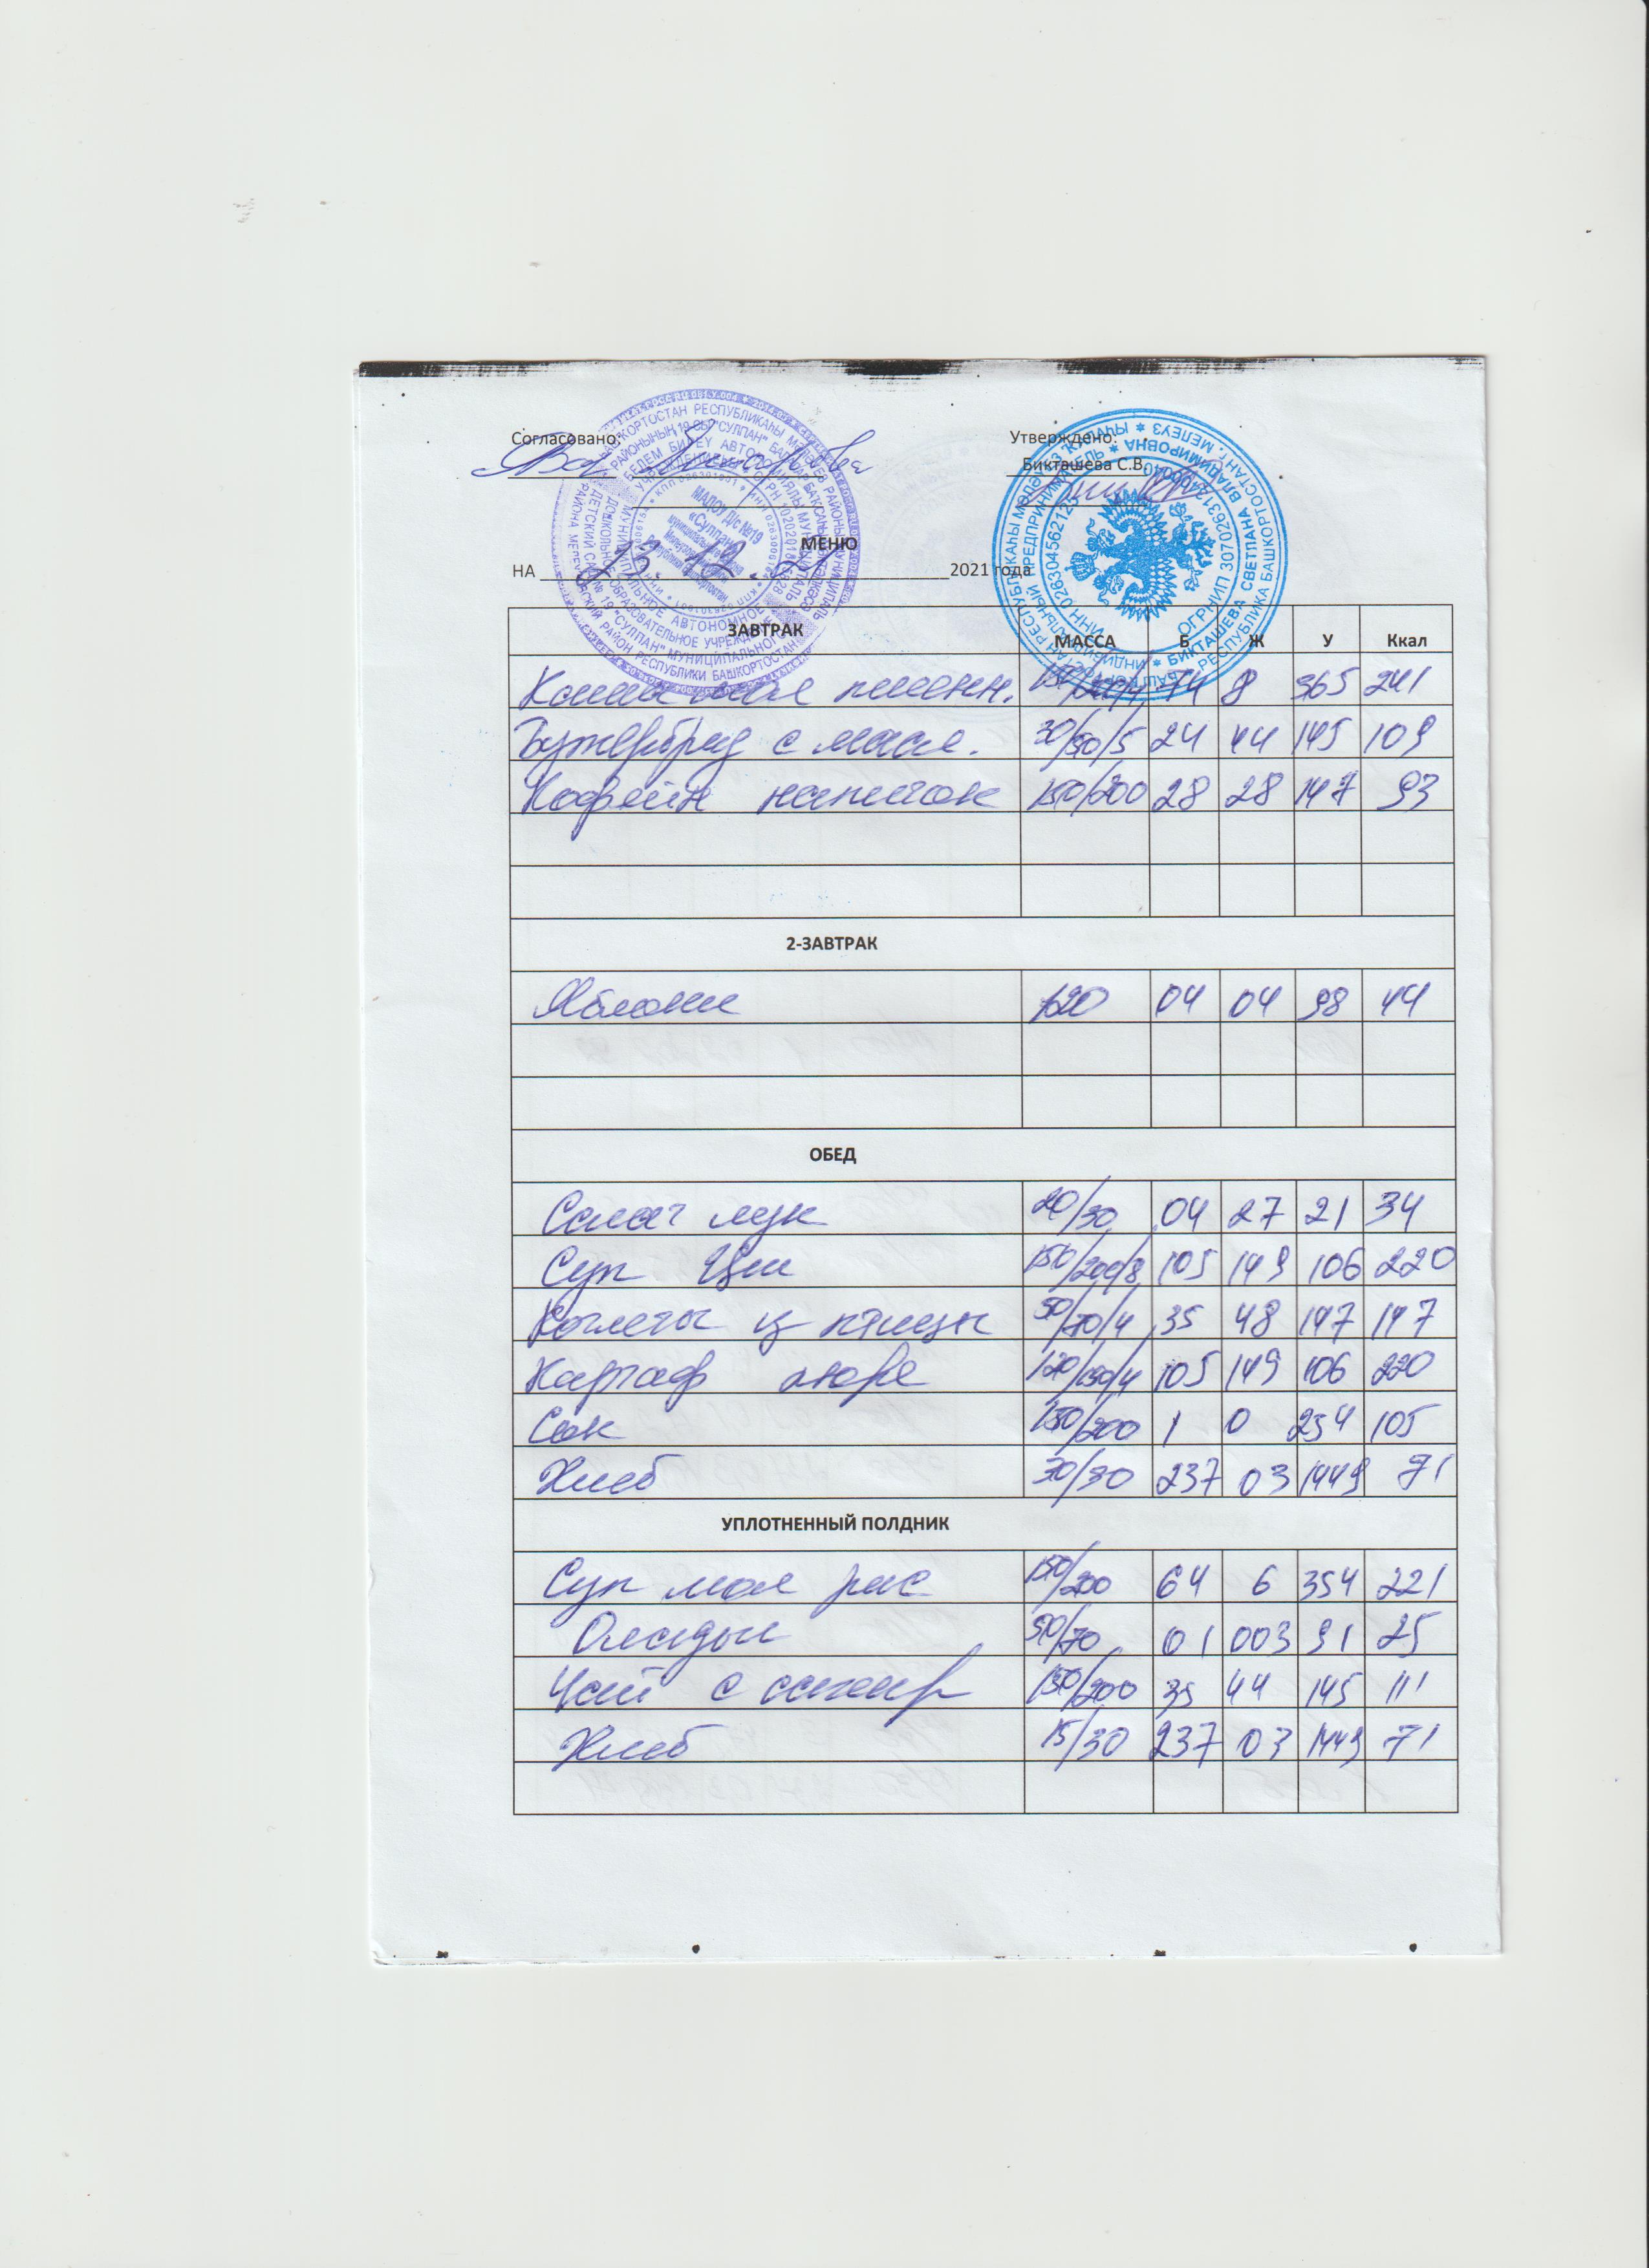 Согласовано:
Утверждено:
Бикташева С.В.
МАДОУ Д/с №19
«Сулпан»
МЕНЮ
НА 23.12.21 2021 года
ЗАВТРАК МАССА Б Ж У Ккал
Каша мол пшенн. 150/200/4 74 8 365 241
Бутерброд с масл. 30/50/5 24 44 145 109
Кофейн напиток 150/200 28 28 147 93
2-ЗАВТРАК
Яблоки 120 04 04 98 44
ОБЕД
Салат лук 20/30 04 27 21 34
Суп Щи 150/200/8 105 149 106 220
Котлеты из птицы 50/70/4 35 48 147 147
Картоф пюре 120/150/4 105 149 106 220
Сок 150/200 1 0 234 105
Хлеб 30/30 237 03 1449 71
УПЛОТНЕННЫЙ ПОЛДНИК
Суп мол рис 150/200 64 6 354 221
Оладьи 50/70 01 003 91 25
Чай с сахар 150/200 35 44 145 111
Хлеб 15/30 237 03 1449 71